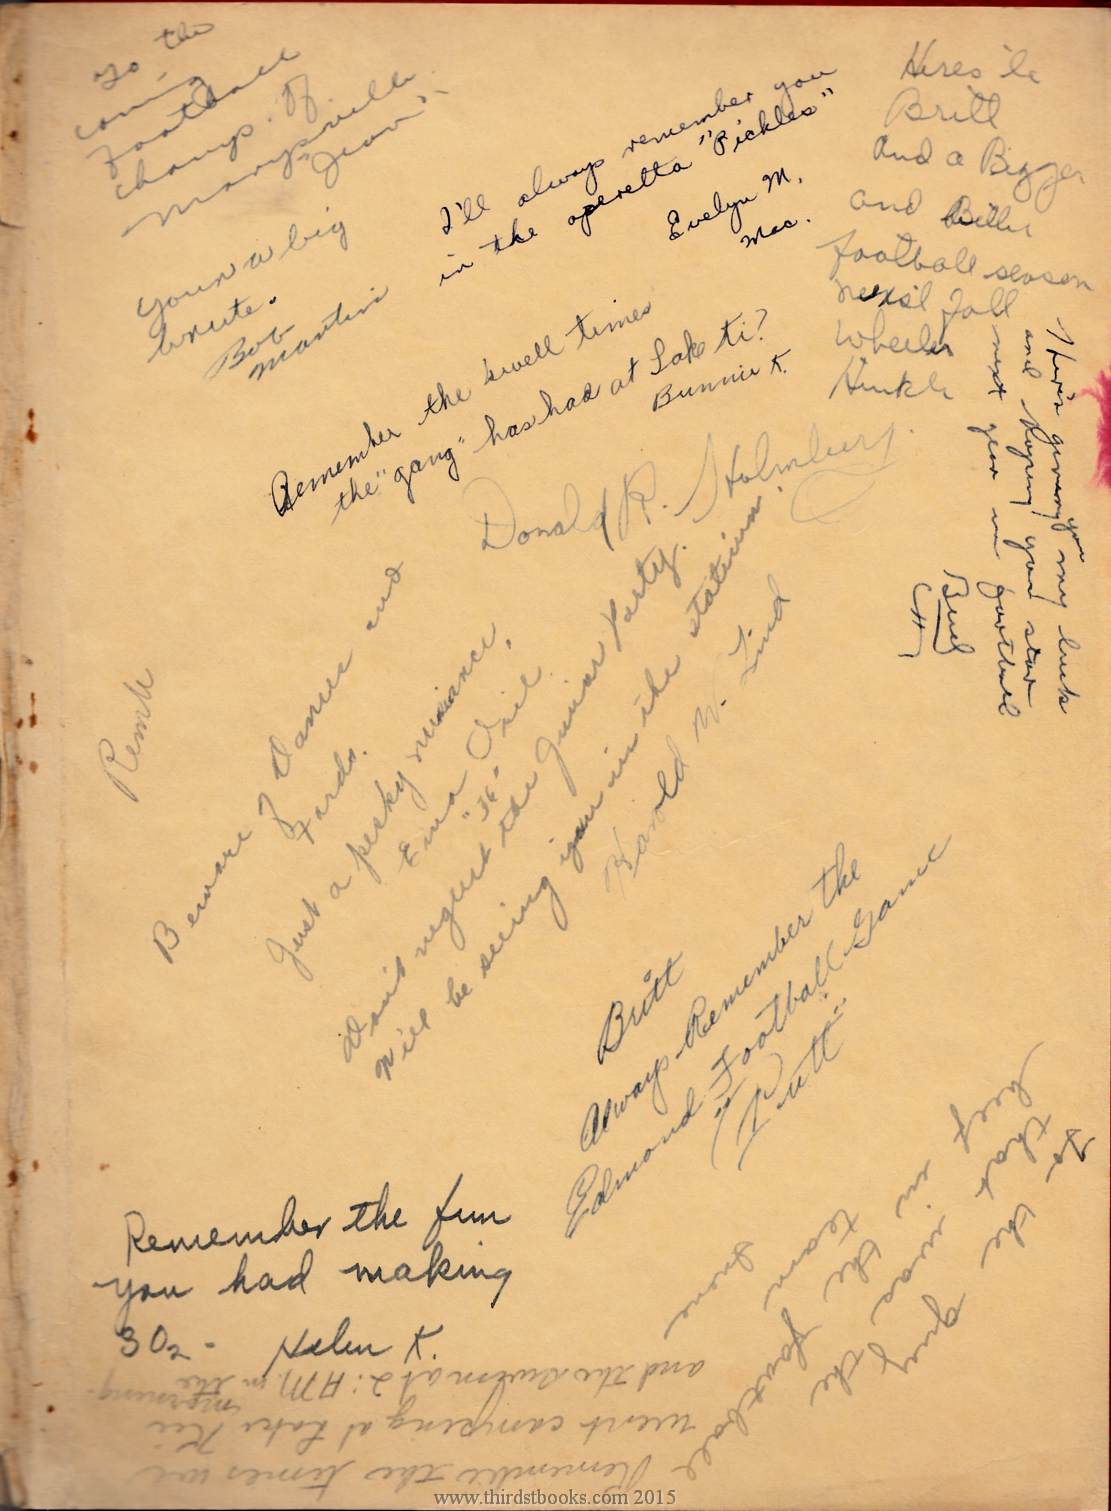 To the
coming
football
champs. of
Marysville
"Jeor"
youn a big
brute.
Bob
Martin
I'll always remember you
in the operetta "Pickles"
Evelyn M.
Mac.
Heres 'le
Britt
and a Bigger
and Better
football season
next fall
Wheeler
Hinkle
Here's giving you my luck
and hoping you star
next year in football
Buel
CH
Remember the swell times
the "gang" has had at Lake Ti?
Bunnie K.
Donald R. Holmberg.
Remb
Beware of Dames and
Fords.
Just a pesky nuisance,
Erna Orie
"36"
Don't neguct the Junior Party.
I'll be seeing you in the station.
Harold W. Lind
Britt
Always Remember the
Edmond Football Game
"Putt"
Remember the fun
you had making
SO2 - Helen K.
To the guy
that was the
beef in the football
team
from
Remember the times we
went camping at Lake Kei
and the swim at 2: AM. in the
morning
www.thirdstbooks.com 2015